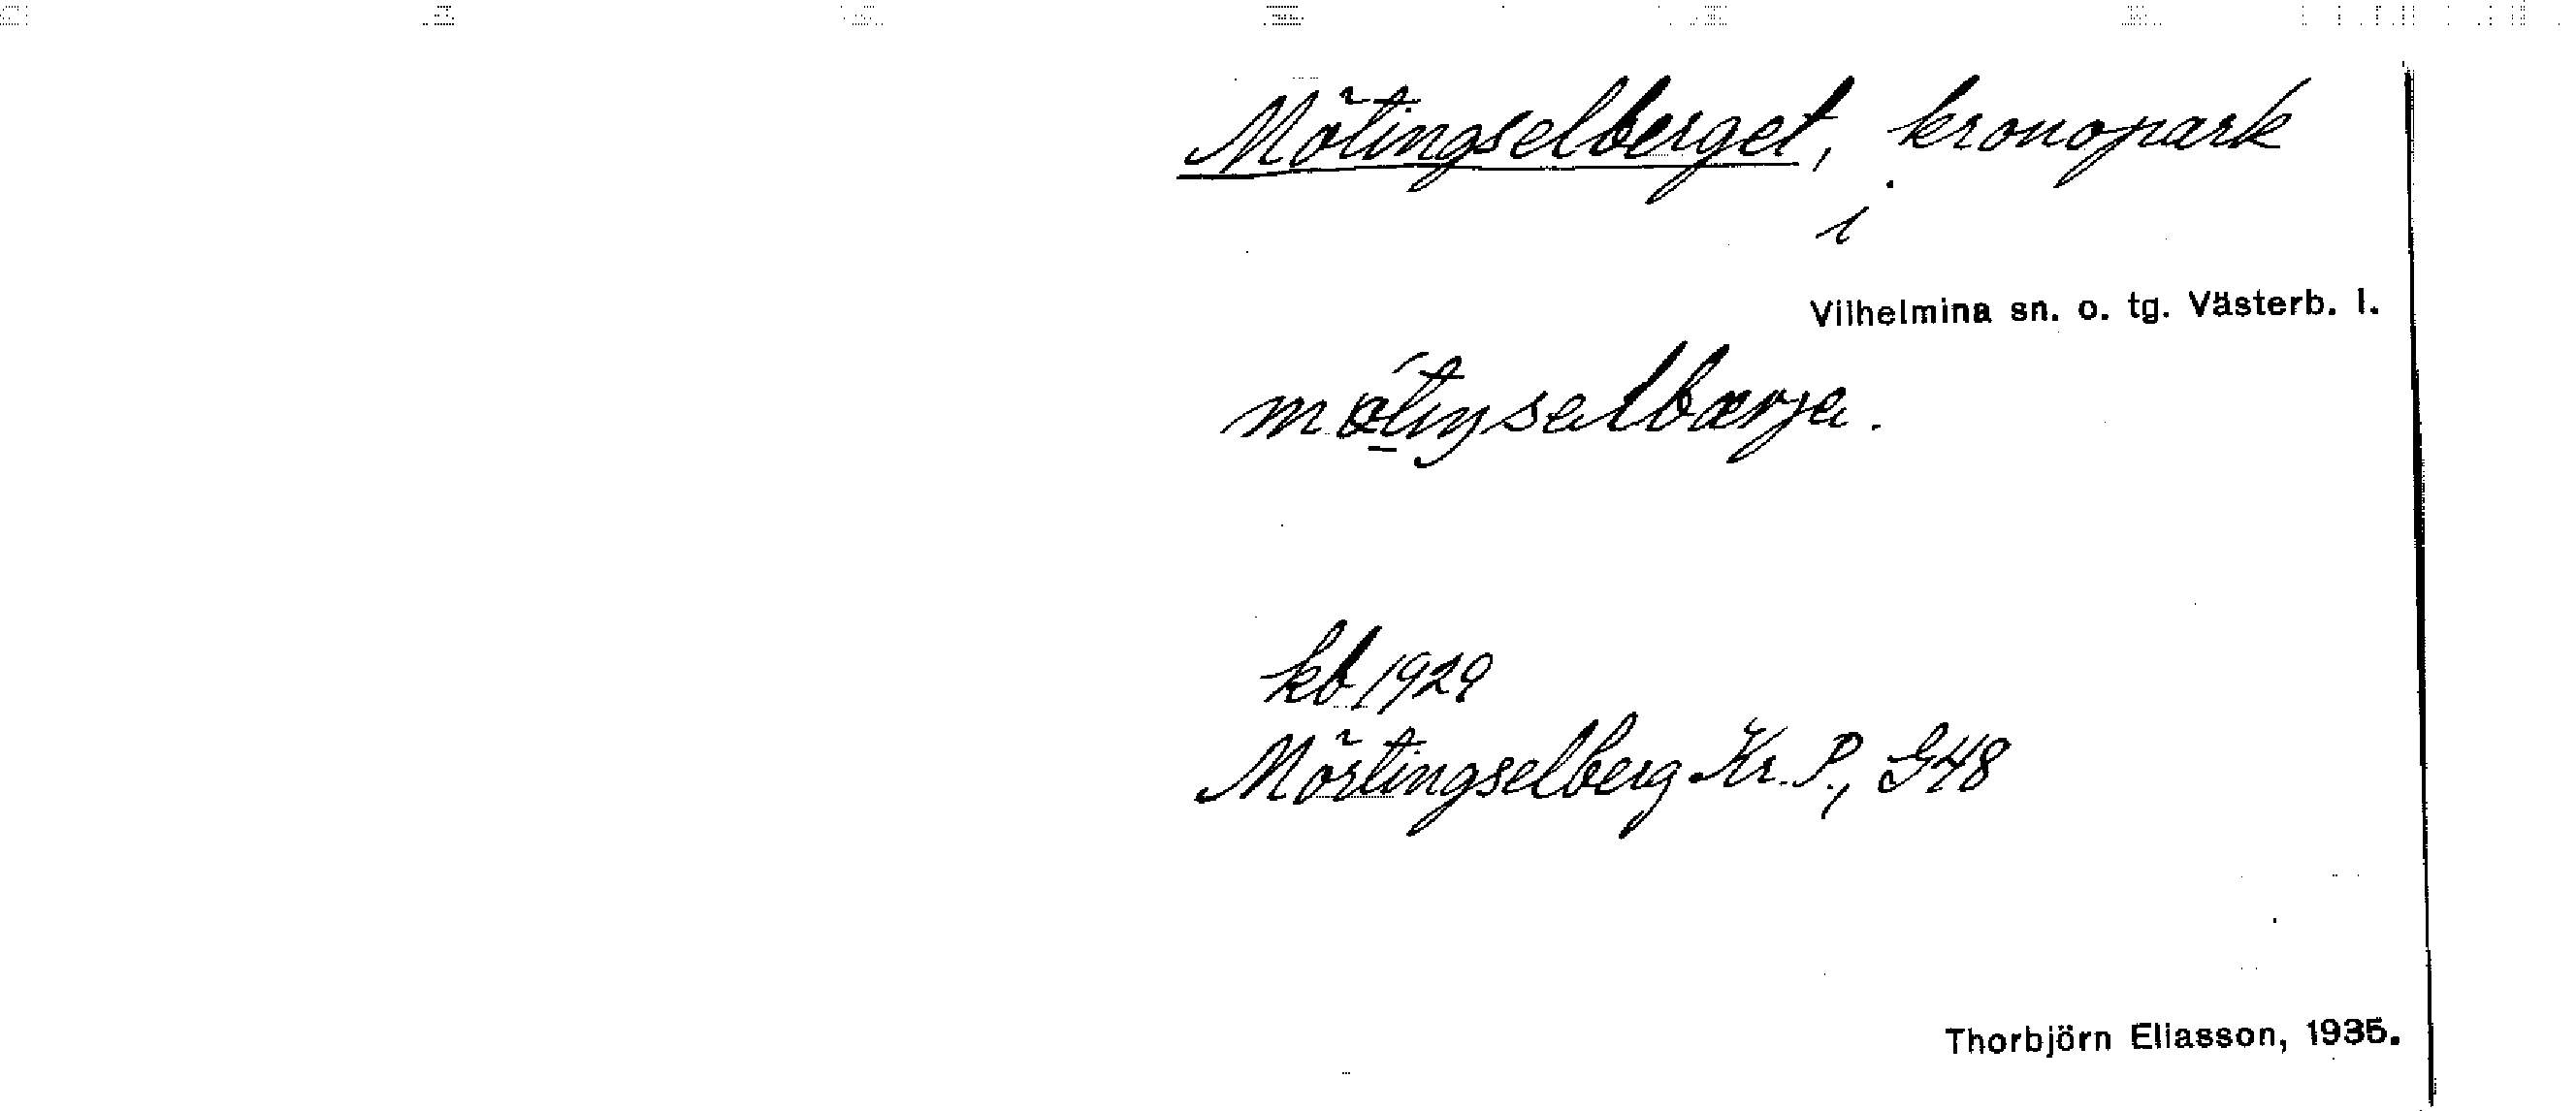 Mötingselberget, kronopark
i
Vilhelmina sn. o. tg. Västerb. l.
kb 1929
Mörtingselberg Kr. P., G48
Thorbjörn Eliasson, 1935.